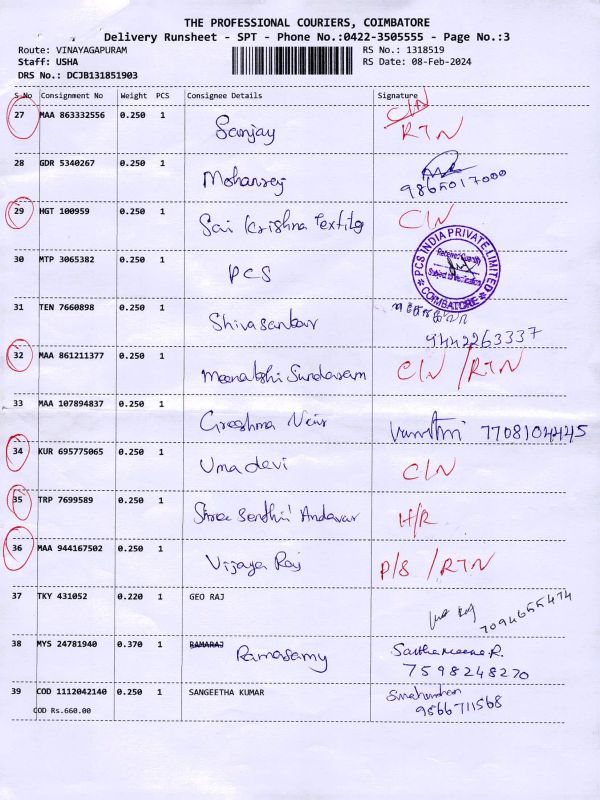 THE PROFESSIONAL COURIERS, COIMBATORE
Delivery Runsheet - SPT - Phone No.:0422-3505555 - Page No.:3
Route: VINAYAGAPURAM
Staff: USHA
DRS No.: DCJB131851903
RS No.: 1318519
RS Date: 08-Feb-2024
S.No Consignment No Weight PCS Consignee Details Signature
27 MAA 863332556 0.250 1 Sanjay C/N RTN
28 GDR 5340267 0.250 1 Mohanraj 9865017000
29 HGT 100959 0.250 1 Sai Krishna Textiles C/N
30 MTP 3065382 0.250 1 PCS
PCS INDIA PRIVATE LIMITED
Received Quantity
Subject to Verification
COIMBATORE
31 TEN 7660898 0.250 1 Shivasankar 9442263337
32 MAA 861211377 0.250 1 Meenatshi Sundaram C/N /RTN
33 MAA 107894837 0.250 1 Greeshma Nair 7708104445
34 KUR 695775065 0.250 1 Umadevi C/N
35 TRP 7699589 0.250 1 Shree Senthil Andavar H/R
36 MAA 944167502 0.250 1 Vijaya Raj P/S /RTN
37 TKY 431052 0.220 1 GEO RAJ 7094655474
38 MYS 24781940 0.370 1 RAMARAJ Ramasamy 7598248270
39 COD 1112042140 0.250 1 SANGEETHA KUMAR 9566711568
COD Rs.660.00